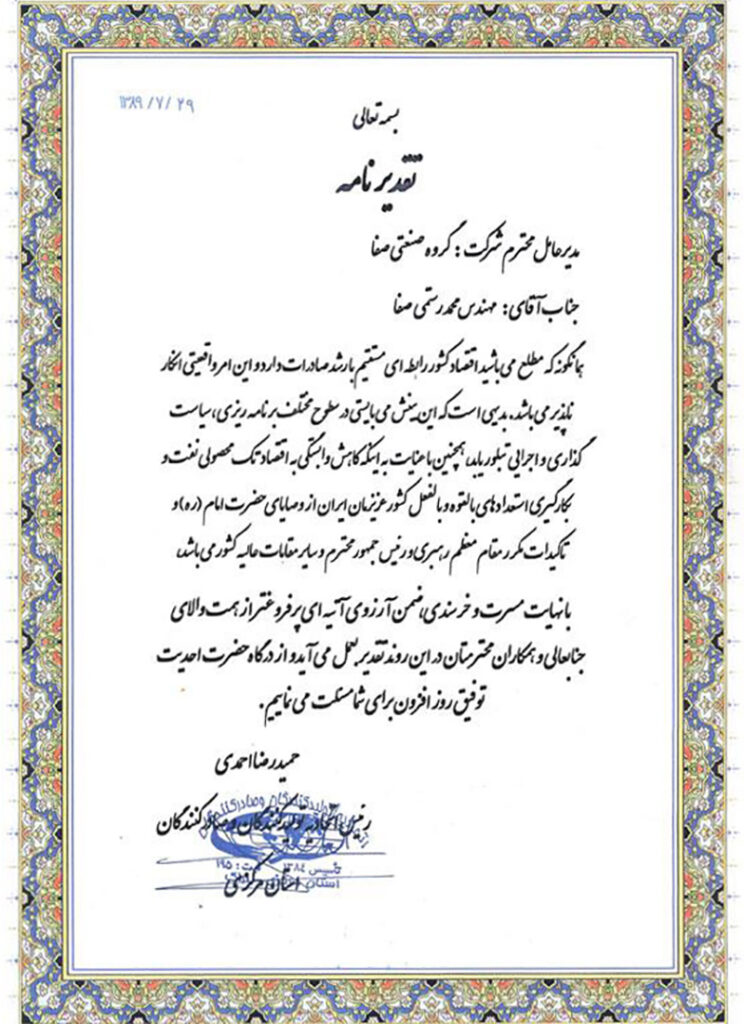 ۱۳۸۹/۷/۲۹
بسمه تعالی
تقدیر نامه
مدیر عامل محترم شرکت : گروه صنعتی صفا
جناب آقای : مهندس محمد رستمی صفا
همانگونه که مطلع می باشید اقتصاد کشور رابطه ای مستقیم با رشد صادرات دارد و این امر واقعیتی انکار
ناپذیر می باشد. بدیهی است که این بینش می بایستی در سطوح مختلف برنامه ریزی، سیاست
گذاری و اجرایی تبلور یابد، همچنین با عنایت به اینکه کاهش وابستگی به اقتصاد تک محصولی نفت و
بکارگیری استعدادهای بالقوه و بالفعل کشور عزیزمان ایران از وصایای حضرت امام (ره) و
تاکیدات مکرر مقام معظم رهبری و رئیس جمهور محترم و سایر مقامات عالیه کشور می باشد،
با نهایت مسرت و خرسندی، ضمن آرزوی آتیه ای پر فروغتر از همت والای
جنابعالی و همکاران محترمتان در این روند تقدیر بعمل می آید و از درگاه حضرت احدیت
توفیق روز افزون برای شما مسئلت می نماییم.
حمیدرضا احمدی
رئیس اتحادیه تولیدکنندگان و صادرکنندگان
استان مرکزی